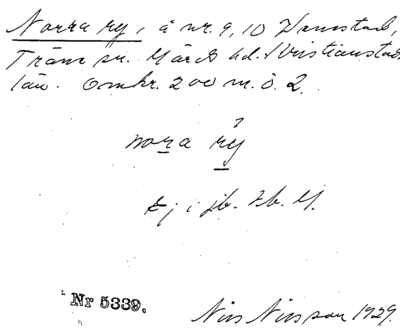 Norra ry, å nr. 9, 10 Vannstad,
Träne sn. Gärds hd. Kristianstads
län. Omkr. 200 m. ö. 2.
nora rý
Ej i jb. Fb. G.
Nr 5339.
Nils Nilsson 1929.